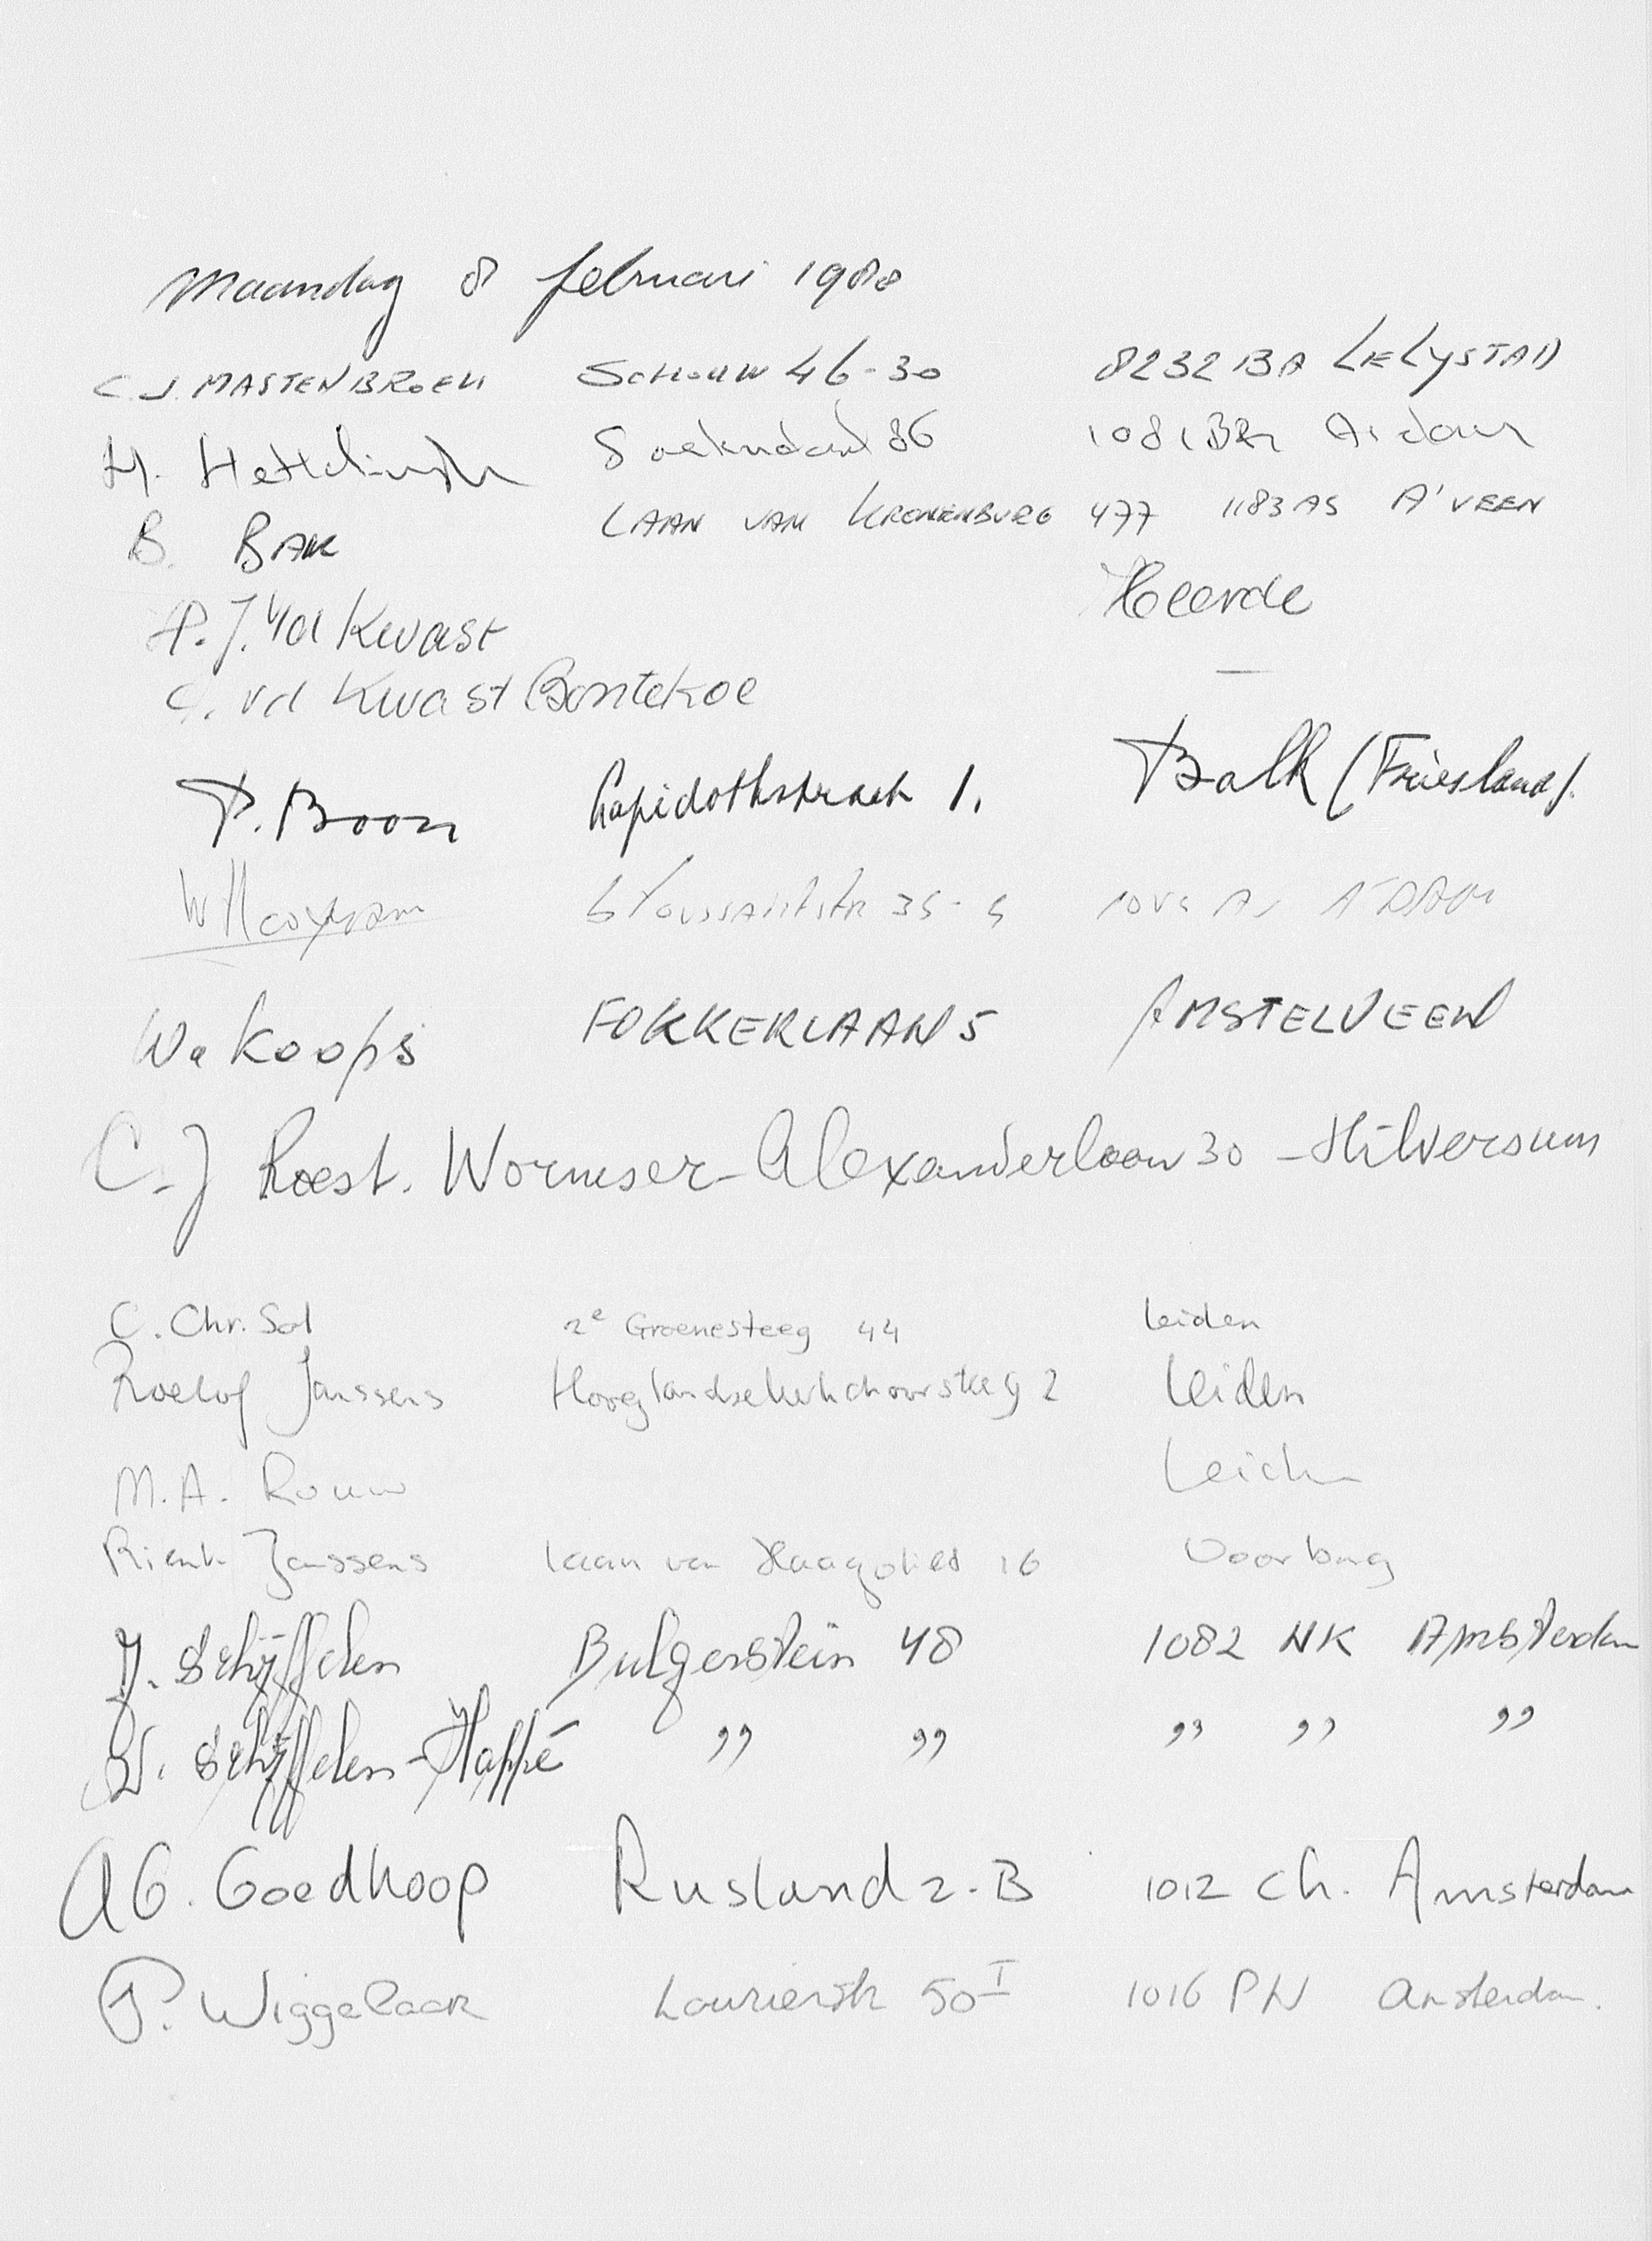 Maandag 8 februari 1988
C.J. MASTENBROEK SCHOUW 46-30 8232 BA LELYSTAD
H. 86 1081 BR A'dam
B. BAK LAAN VAN KRONENBURG 477 1183 AS A'VEEN
H.J. vd Kwast Heerde
C. vd Kwast Bontekoe —
P. Boon Lapidothstraat 1. Balk (Friesland).
35- A'DAM
W. Koops FOKKERLAAN 5 AMSTELVEEN
C.J Roest. Wormser-Alexanderlaan 30 - Hilversum
C. Chr. Sol 2e Groenesteeg 44 Leiden
Roelof Janssens Hooglandsekerkchoorsteeg 2 Leiden
M.A. Rouw Leiden
Rienk Janssens Laan van Haagvliet 16 Voorburg
J. Schijffelen Bulgerstein 48 1082 NK Amsterdam
W. Schijffelen-Happé ,, ,, ,, ,, ,,
AG. Goedhoop Rusland 2-B 1012 Ch. Amsterdam
P. Wiggelaar Laurierstr 50 I 1016 PN Amsterdam.